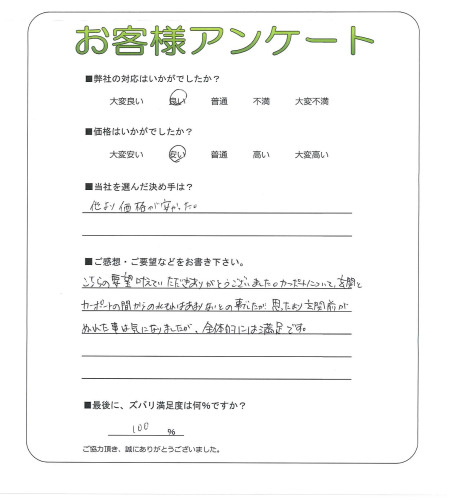 お客様アンケート
■弊社の対応はいかがでしたか？
大変良い 良い 普通 不満 大変不満
■価格はいかがでしたか？
大変安い 安い 普通 高い 大変高い
■当社を選んだ決め手は？
他より価格が安かった。
■ご感想・ご要望などをお書き下さい。
こちらの要望叶えていただきありがとうございました。カーポートについて、玄関と
カーポートの間からの水もれはあまりないとの事でしたが思ったより玄関前が
ぬれた事は気になりましたが、全体的には満足です。
■最後に、ズバリ満足度は何％ですか？
100 ％
ご協力頂き、誠にありがとうございました。